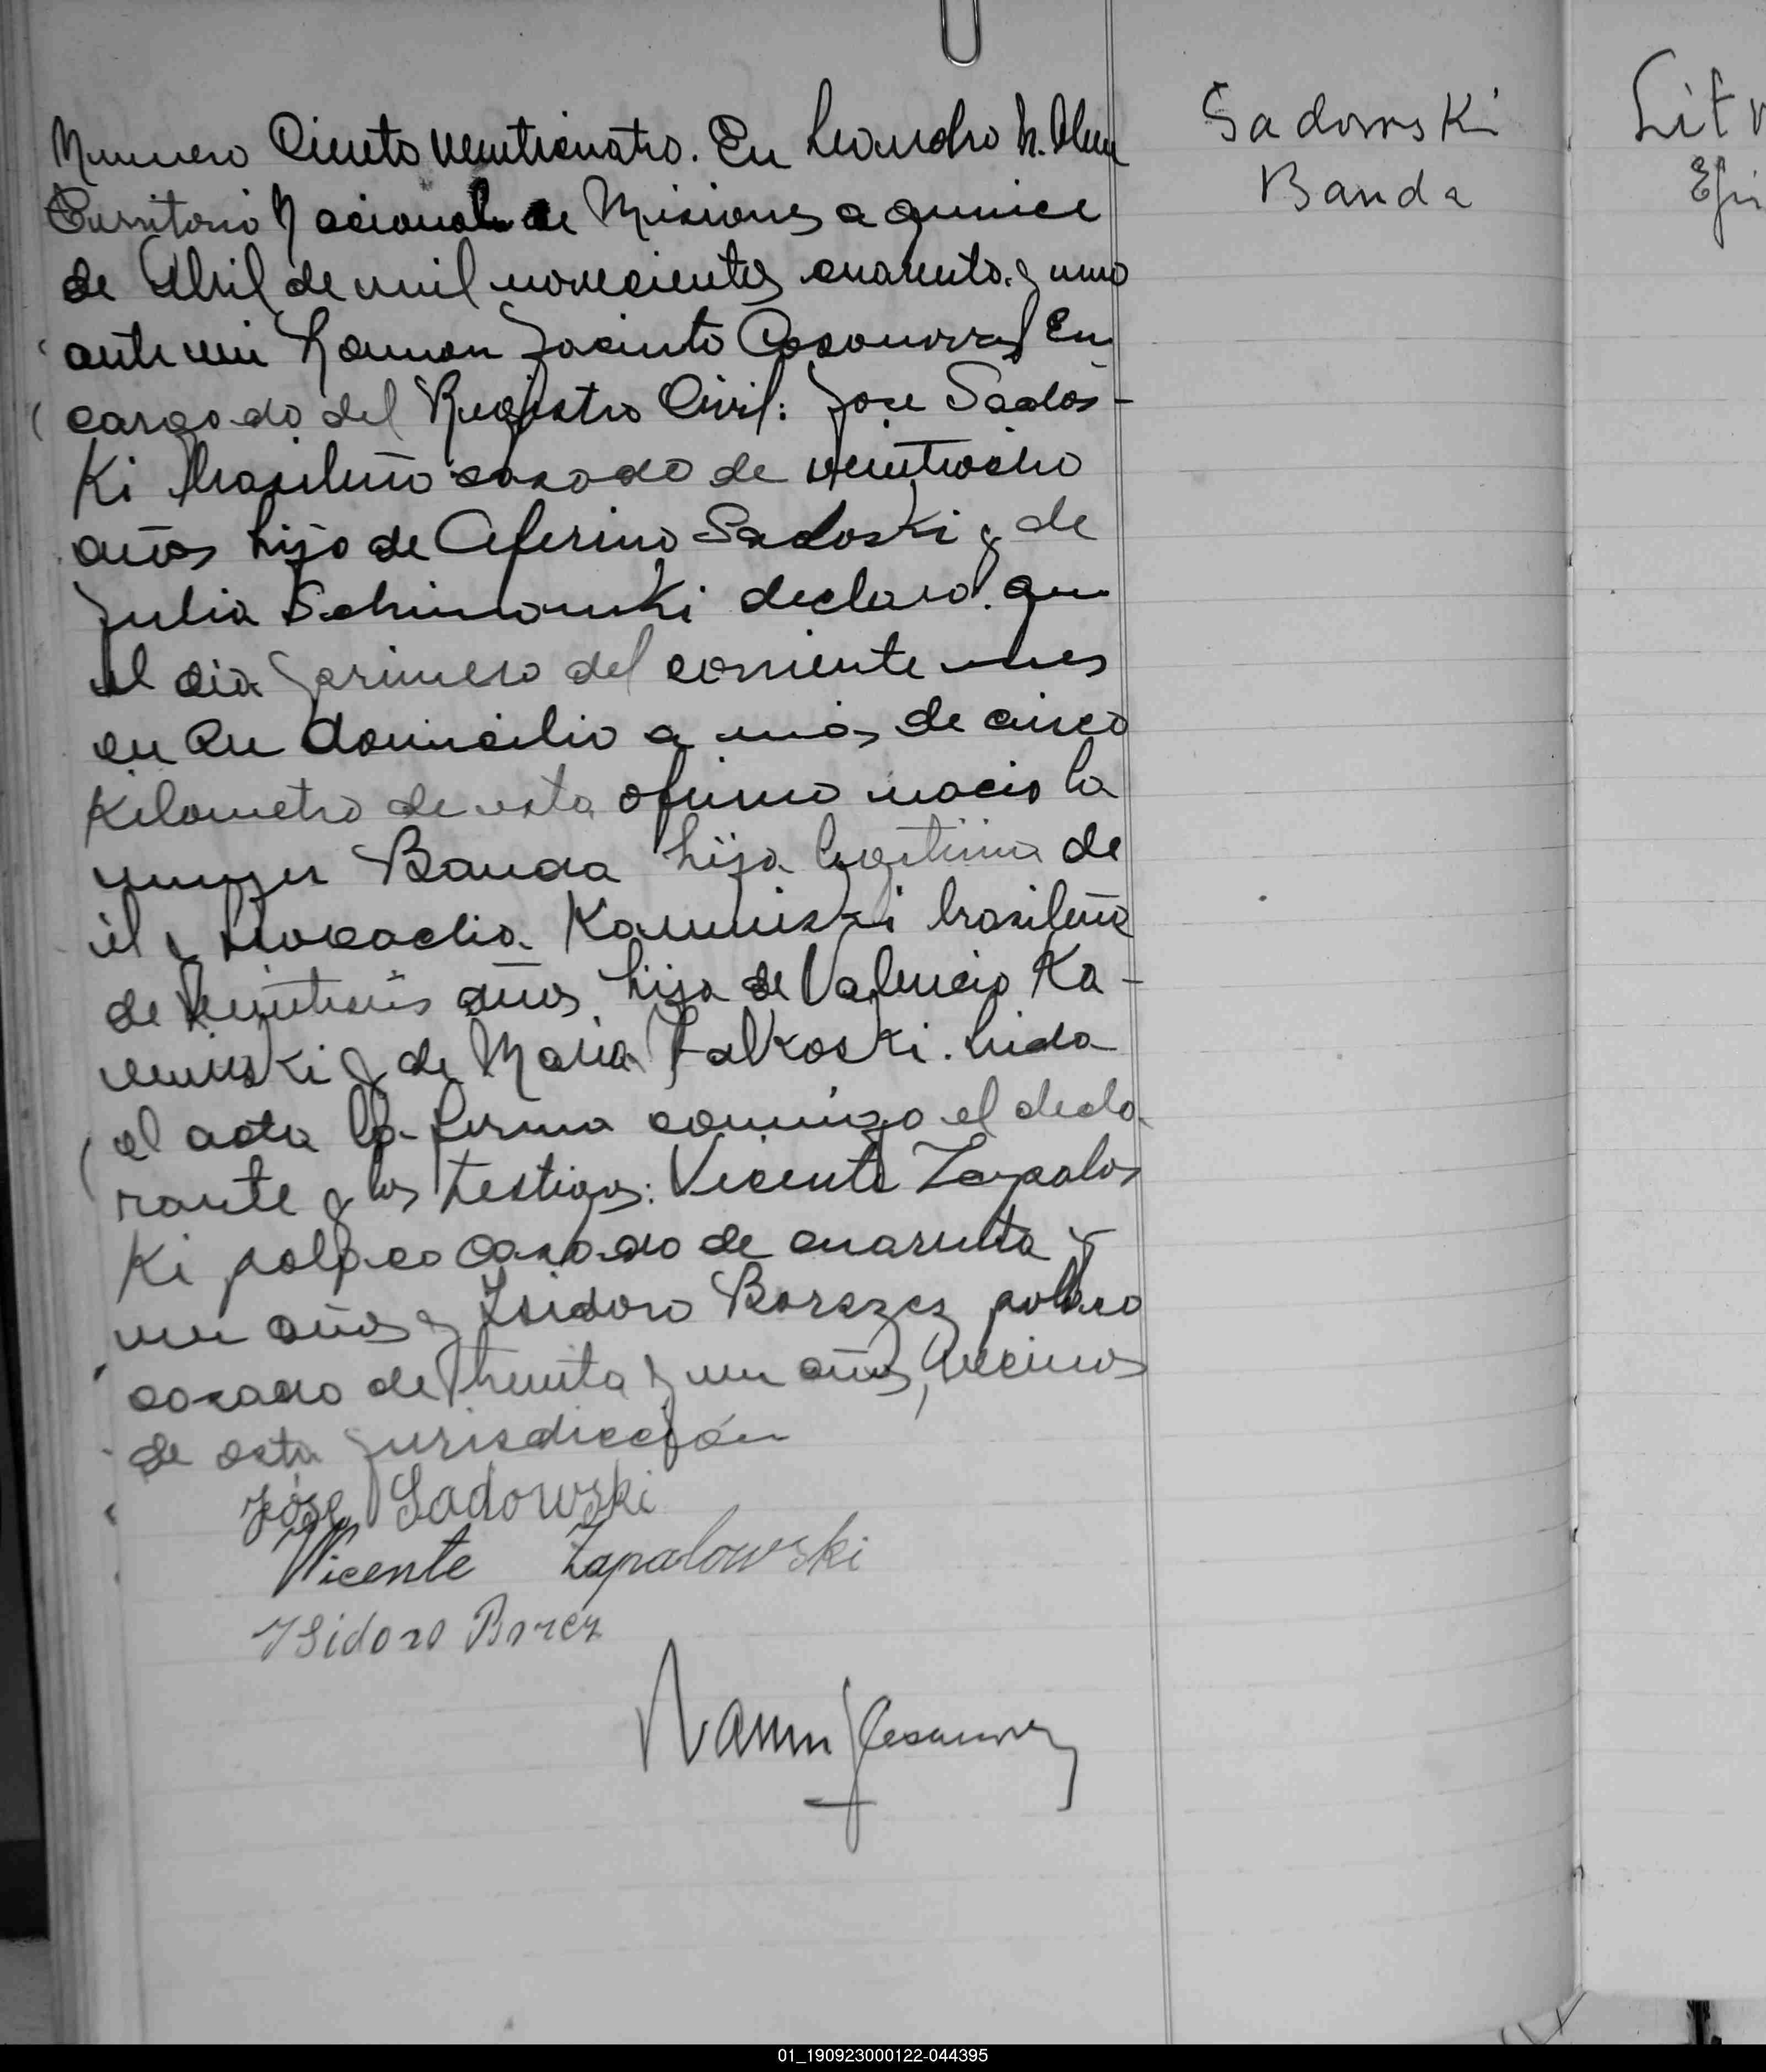 Numero Ciento veinticuatro. En Leandro N. Alem
Territorio Nacional de Misiones a quince
de Abril de mil novecientos cuarenta y uno
ante mi Ramon Jacinto Casanovas En
cargado del Registro Civil: Jose Sados-
Ki brasileño casado de veintiocho
años hijo de Ceferino Sadoski y de
Julia Schimouski declaro que
el dia primero del corriente mes
en su domicilio a más de cinco
Kilometro de esta oficina nacio la
mujer Banda hija legitima de
él y Kaminski brasileña
de años hija de Valencio Ka-
minski y de Maria Falkoski. Leida
el acta la firma conmigo el decla
rante y los testigos: Vicente Zapalos
Ki polaco casado de cuarenta y
un años y Isidoro Borszcz polaco
casado de treinta y un años, vecinos
de esta jurisdicción
José Sadowski
Vicente Zapalowski
Isidoro Borcz
Sadowski
Banda
Lit
Efi
01_190923000122-044395